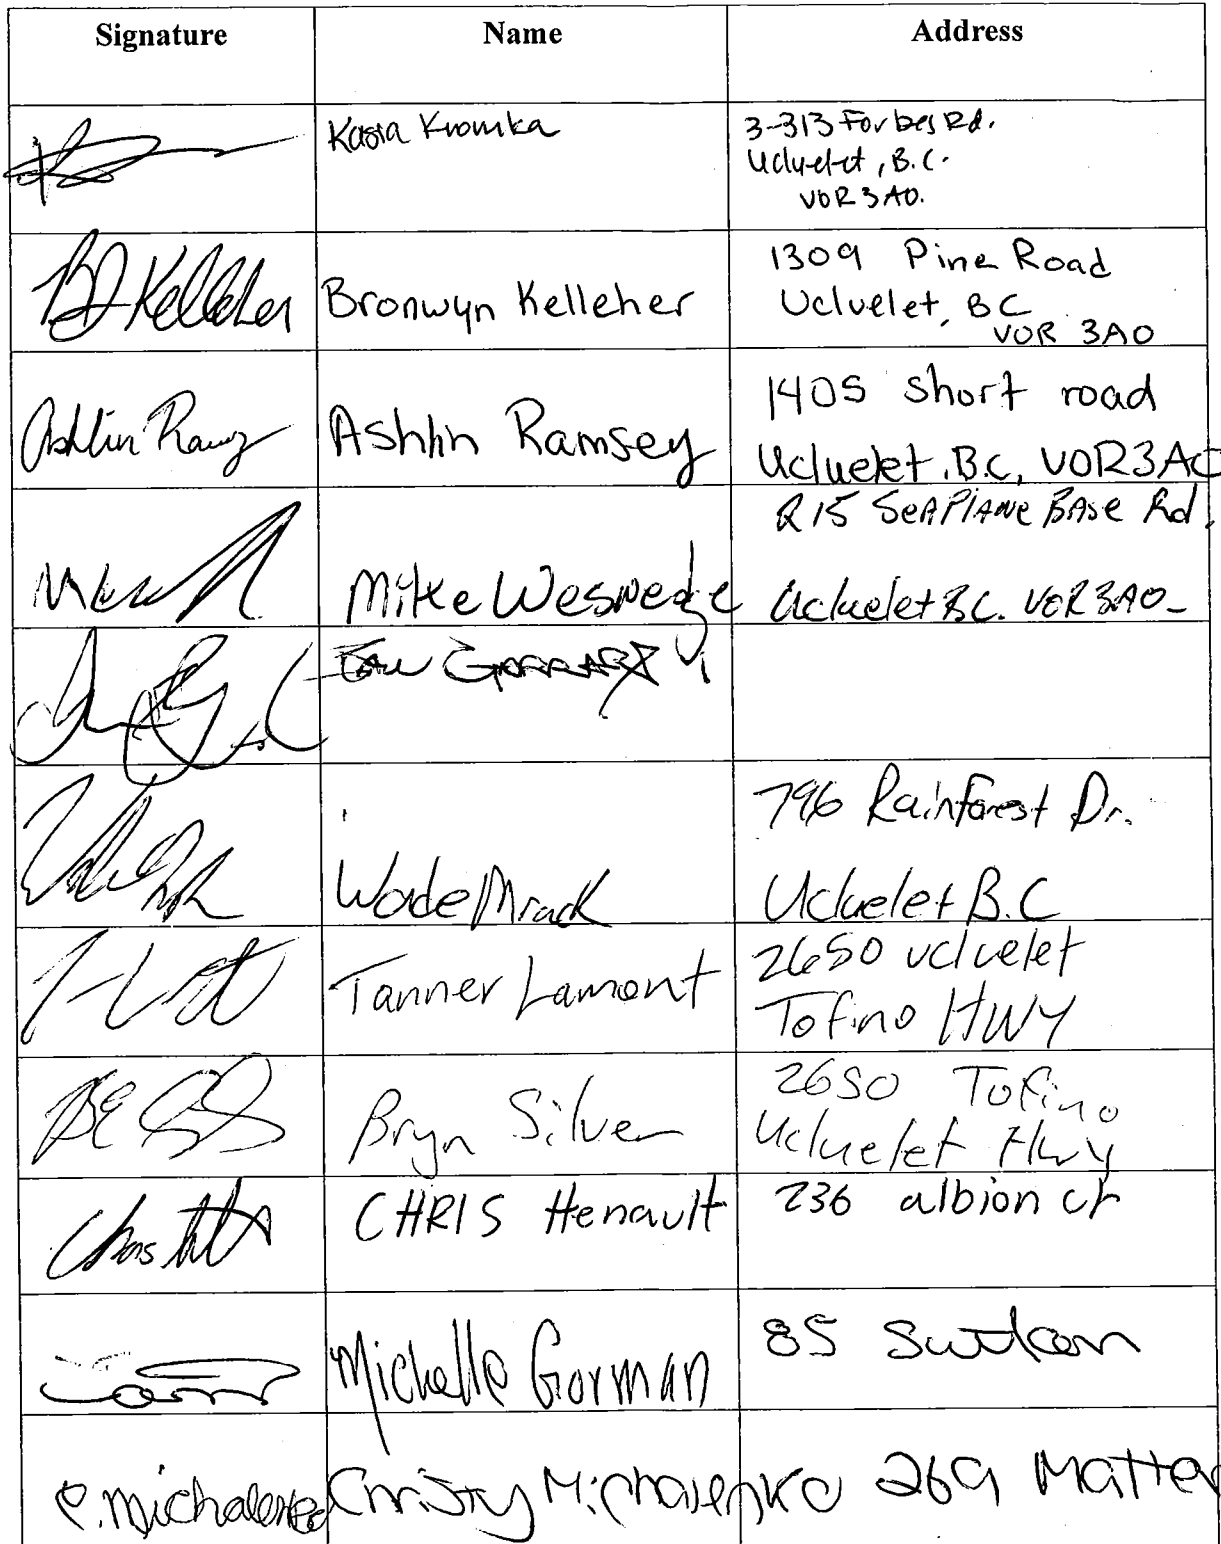 Signature Name Address
Kasia Kromka 3-313 Forbes Rd.
Ucluelet, B.C.
V0R 3A0.
BD Kelleher Bronwyn Kelleher 1309 Pine Road
Ucluelet, BC
V0R 3A0
Ashlin Ashlin Ramsey 1405 short road
Ucluelet, B.C, V0R3A0
Mike 215 SeAPlANe BAse Rd.
Ucluelet B.C. V0R3A0
796 Rainforest Dr.
Wade Mrack Ucluelet B.C
Tanner Lamont 2650 ucluelet
Tofino HWY
Bryn Silver 2650 Tofino
Ucluelet Hwy
CHRIS Henault 236 albion cr
Michelle Gorman 85 Sutton
C. Michalenko Christy Michalenko 269 Matte